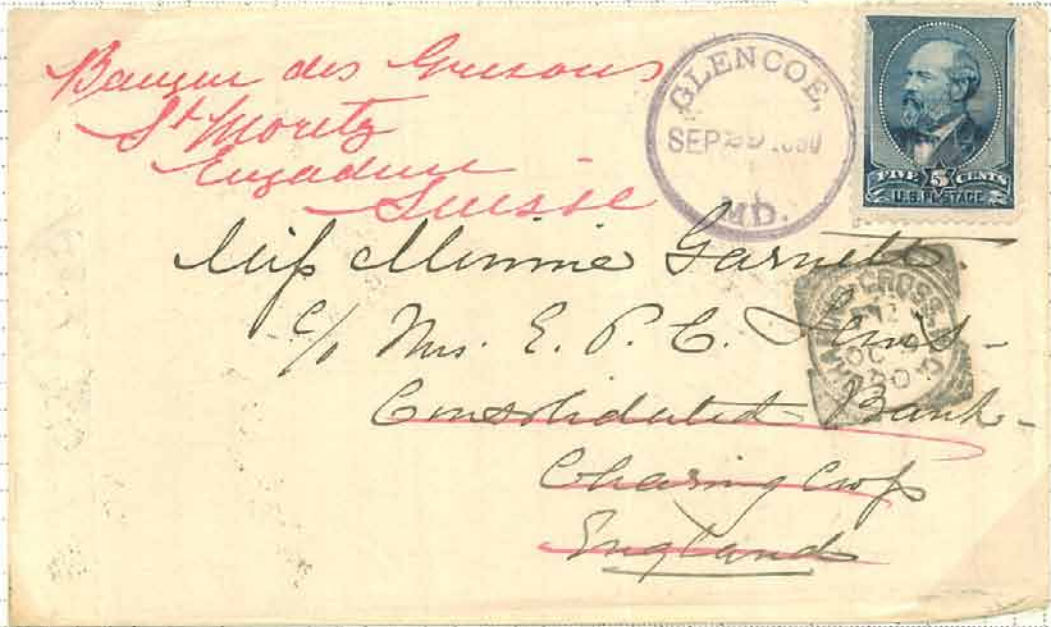 Banque des Grisons
St Moritz
Engadine
Suisse
GLENCOE,
SEP 1890
MD.
FIVE 5 CENTS
U.S. POSTAGE
Miss Minnie Garnett.
c/o Mrs. E. P. C.
Consolidated Bank-
Charing Cross
England
CHARING-CROSS.W.C.
OC
90